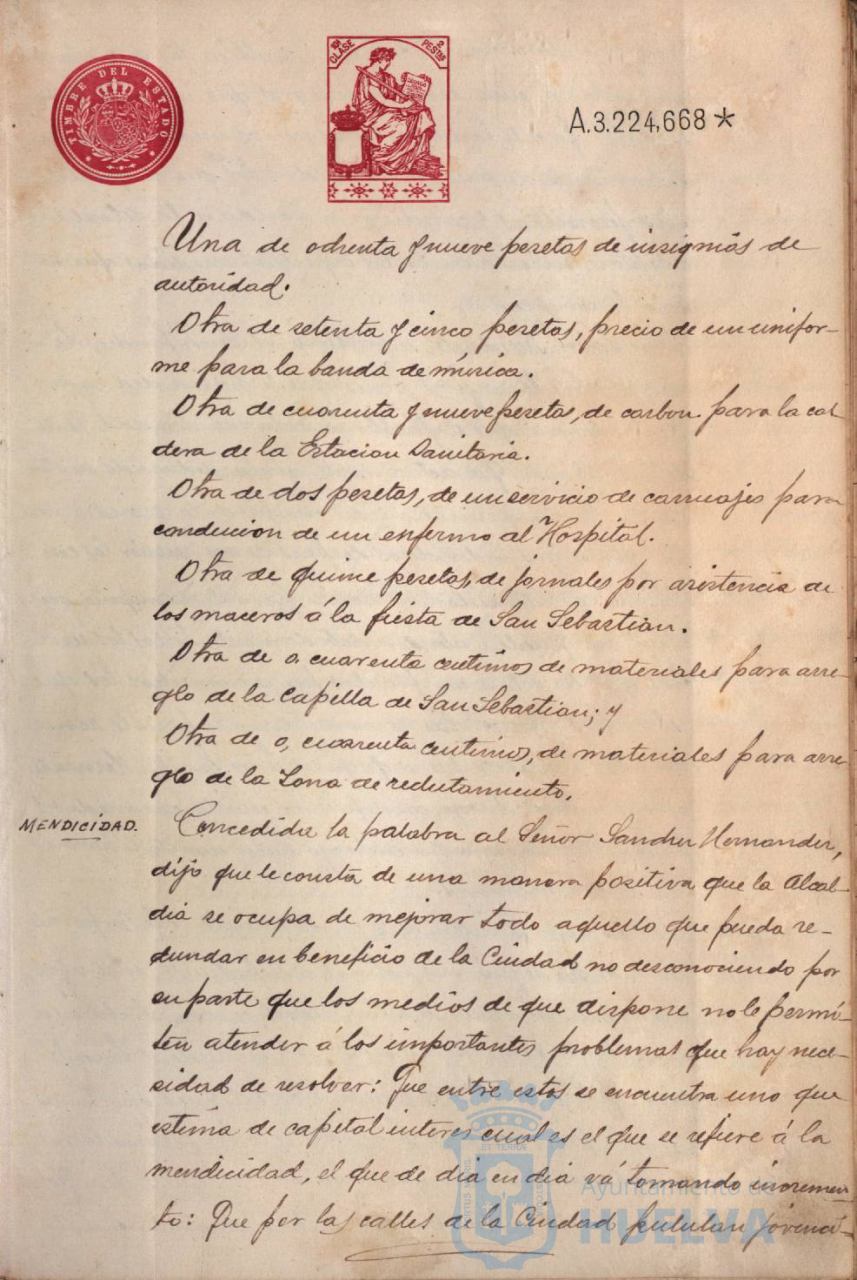 TIMBRE DEL ESTADO
10ª CLASE
2 PESTAS
A.3.224,668*
Una de ochenta y nueve pesetas de insignias de
autoridad.
Otra de setenta y cinco pesetas, precio de un unifor-
me para la banda de música.
Otra de cuarenta y nueve pesetas, de carbon para la cal
dera de la Estacion Sanitaria.
Otra de dos pesetas, de un servicio de carruajes para
conducion de un enfermo al Hospital.
Otra de quince pesetas, de jornales por asistencia de
los maceros á la fiesta de San Sebastian.
Otra de o, cuarenta centimos de materiales para arre-
glo de la Capilla de San Sebastian; y
Otra de o, cuarenta centimos, de materiales para arre
glo de la Zona de reclutamiento.
MENDICIDAD.
Concedida la palabra al Señor Sanchez Hernandez,
dijo que le consta de una manera positiva que la Alcal-
dia se ocupa de mejorar todo aquello que pueda re-
dundar en beneficio de la Ciudad no desconociendo por
su parte que los medios de que dispone no le permi-
ten atender á los importantes problemas que hay nece-
sidad de resolver: Que entre estos se encuentra uno que
estima de capital interes cual es el que se refiere á la
mendicidad, el que de dia en dia vá tomando incremen
to: Que por las calles de la Ciudad pululan jovenci-
Ayuntamiento de
HUELVA